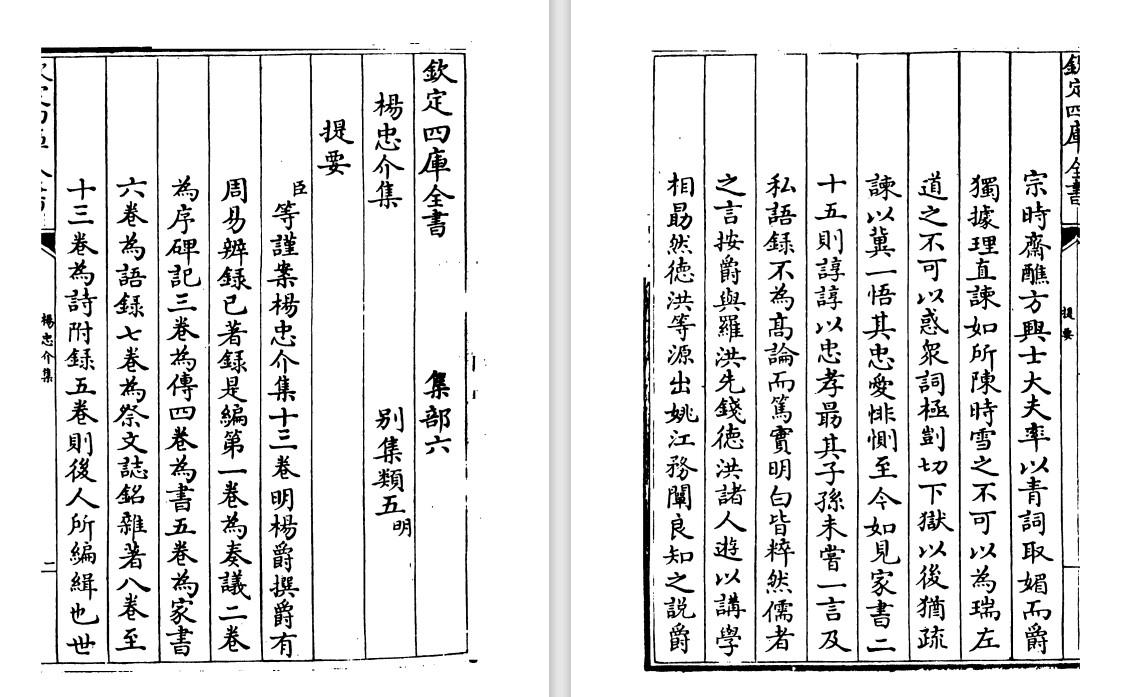 欽定四庫全書 集部六
楊忠介集 別集類五明
提要
臣等謹案楊忠介集十三卷明楊爵撰爵有
周易辨録已著録是編第一卷為奏議二卷
為序碑記三卷為傳四卷為書五卷為家書
六卷為語録七卷為祭文誌銘雜著八卷至
十三卷為詩附録五卷則後人所編緝也世
楊忠介集 二
欽定四庫全書 提要
宗時齋醮方興士大夫率以青詞取媚而爵
獨據理直諫如所陳時雪之不可以為瑞左
道之不可以惑衆詞極剴切下獄以後猶疏
諫以冀一悟其忠愛悱惻至今如見家書二
十五則諄諄以忠孝朂其子孫未嘗一言及
私語録不為髙論而篤實明白皆粹然儒者
之言按爵與羅洪先錢徳洪諸人遊以講學
相朂然徳洪等源出姚江務闡良知之説爵